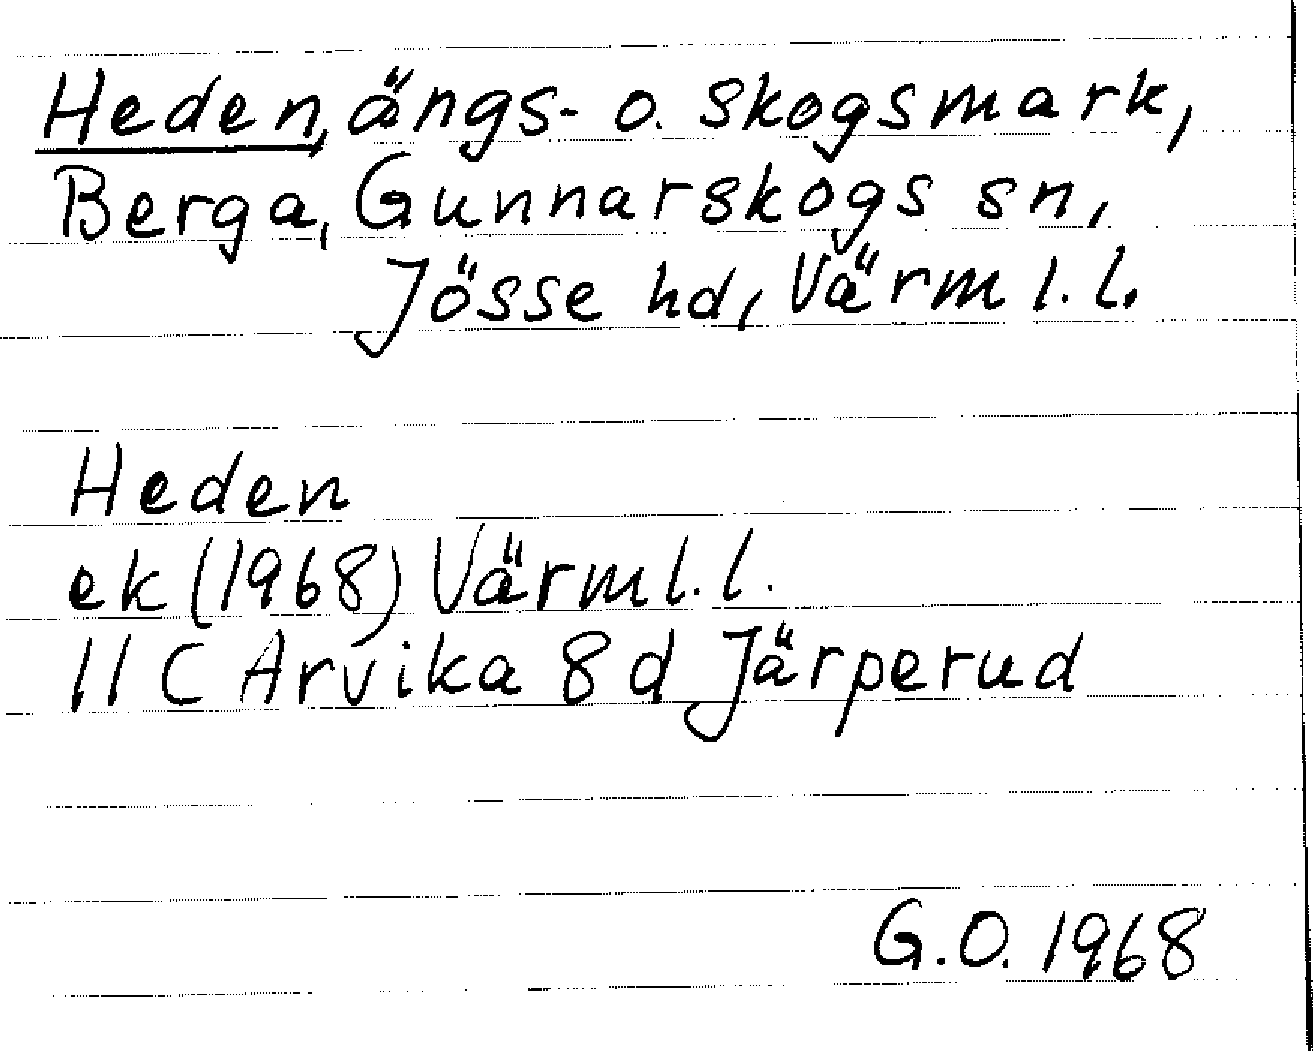 Heden, ängs- o. skogsmark,
Berga, Gunnarskogs sn,
Jösse hd, Värml. l.
Heden
ek (1968) Värml. l.
11 C Arvika 8 d Järperud
G.O. 1968